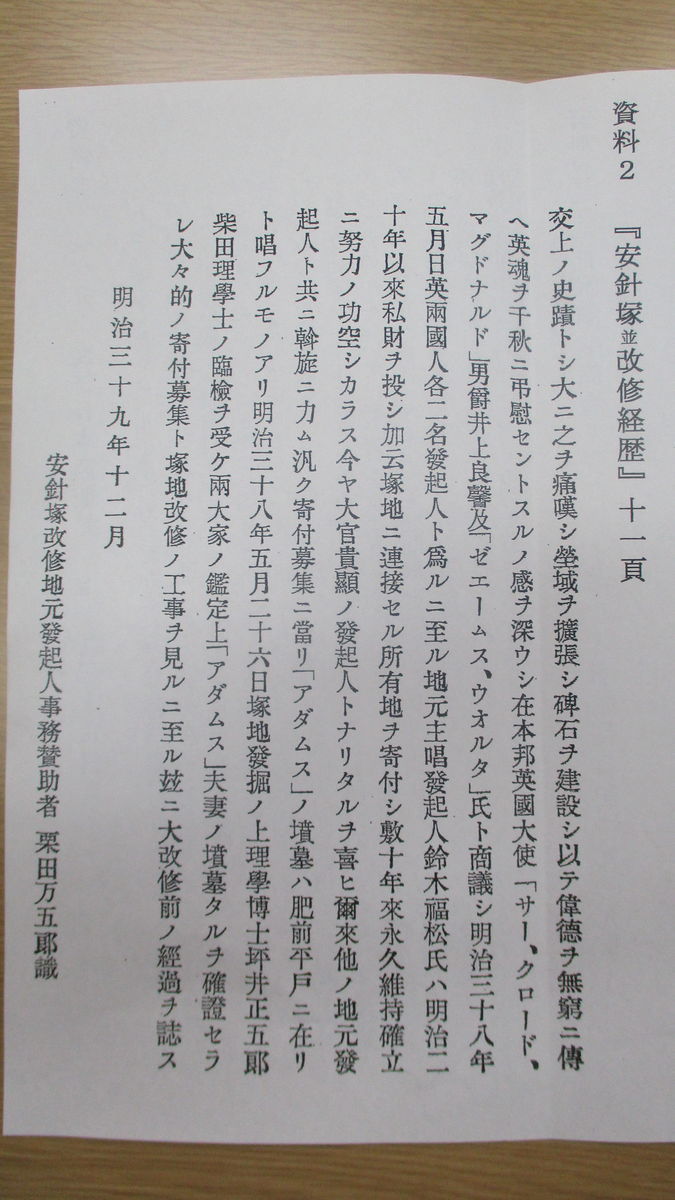 資料２　『安針塚並改修経歴』十一頁
交上ノ史蹟トシ大ニ之ヲ痛嘆シ塋域ヲ擴張シ碑石ヲ建設シ以テ偉德ヲ無窮ニ傳
ヘ英魂ヲ千秋ニ弔慰セントスルノ感ヲ深ウシ在本邦英國大使「サー、クロード、
マグドナルド」男爵井上良馨及「ゼエームス、ウオルタ」氏ト商議シ明治三十八年
五月日英兩國人各二名發起人ト爲ルニ至ル地元主唱發起人鈴木福松氏ハ明治二
十年以來私財ヲ投シ加云塚地ニ連接セル所有地ヲ寄付シ敷十年來永久維持確立
ニ努力ノ功空シカラス今ヤ大官貴顯ノ發起人トナリタルヲ喜ヒ爾來他ノ地元發
起人ト共ニ斡旋ニ力ム汎ク寄付募集ニ當リ「アダムス」ノ墳墓ハ肥前平戸ニ在リ
ト唱フルモノアリ明治三十八年五月二十六日塚地發掘ノ上理學博士坪井正五郎
柴田理學士ノ臨檢ヲ受ケ兩大家ノ鑑定上「アダムス」夫妻ノ墳墓タルヲ確證セラ
レ大々的ノ寄付募集ト塚地改修ノ工事ヲ見ルニ至ル玆ニ大改修前ノ經過ヲ誌ス
明治三十九年十二月
安針塚改修地元發起人事務賛助者 栗田万五郎識